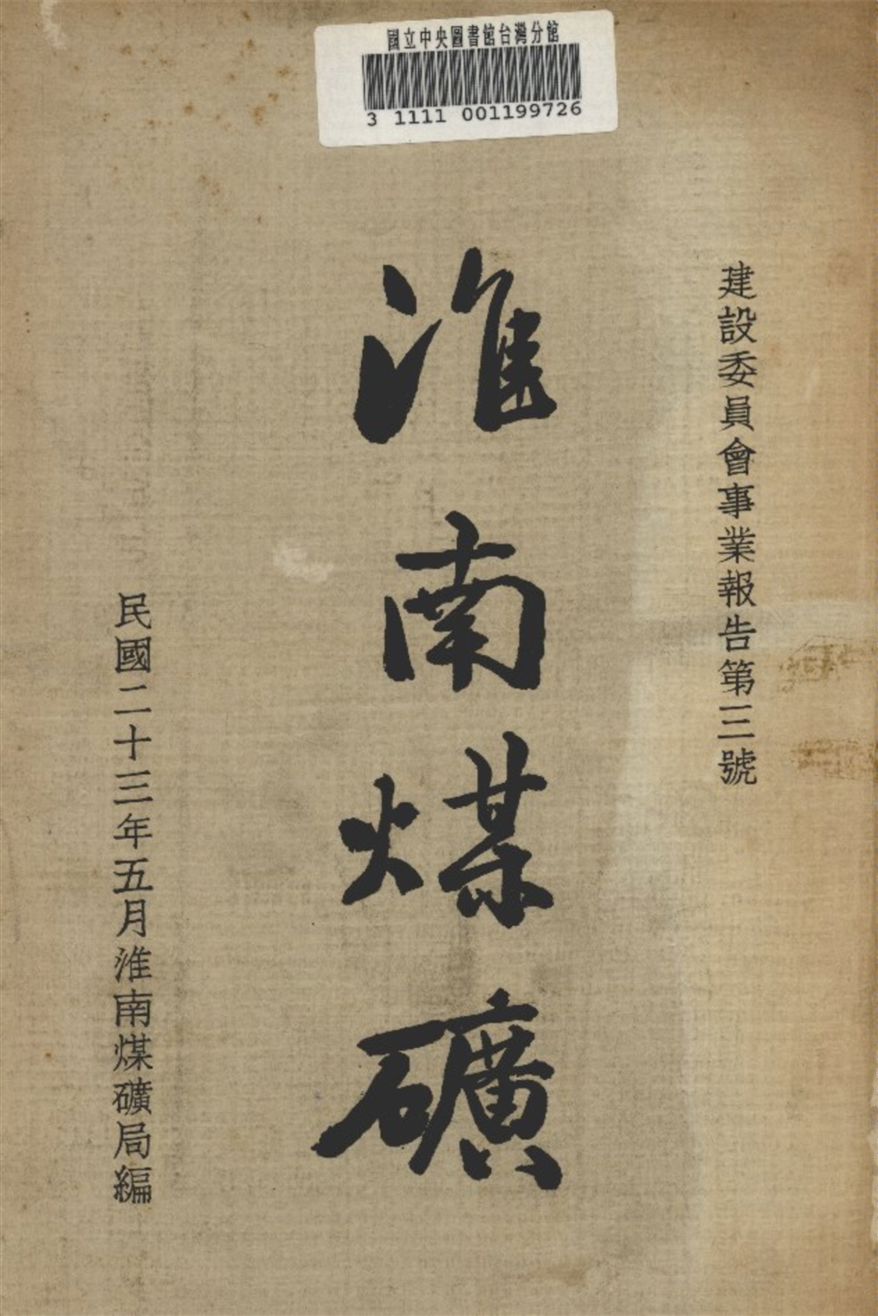 國立中央圖書館台灣分館
3 1111 001199726
建設委員會事業報告第三號
淮南煤礦
民國二十三年五月淮南煤礦局編